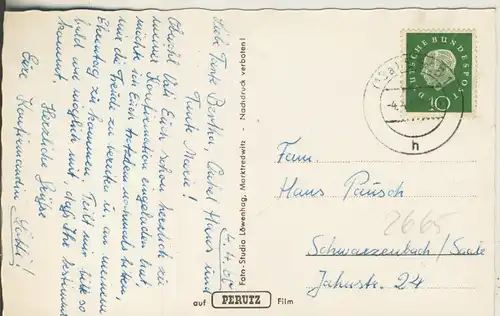 4.4.60
Liebe Tante Bertha, Onkel Hans und
Tante Maria!
Obwohl Vati Euch schon herzlich zu
meiner Konfirmation eingeladen hat,
möchte ich Euch trotzdem nochmals bitten,
mir die Freude zu machen u. an meinem
Ehrentag zu kommen. Teilt mir bitte so
bald wie möglich mit, daß Ihr bestimmt
kommt.
Herzliche Grüße
Eure Konfirmandin
Foto-Studio Löwenhag, Marktredwitz - Nachdruck verboten!
auf PERUTZ Film
DEUTSCHE BUNDESPOST
10
h
Fam.
Hans Pausch
2665
Schwarzenbach/Saale
Jahnstr. 24